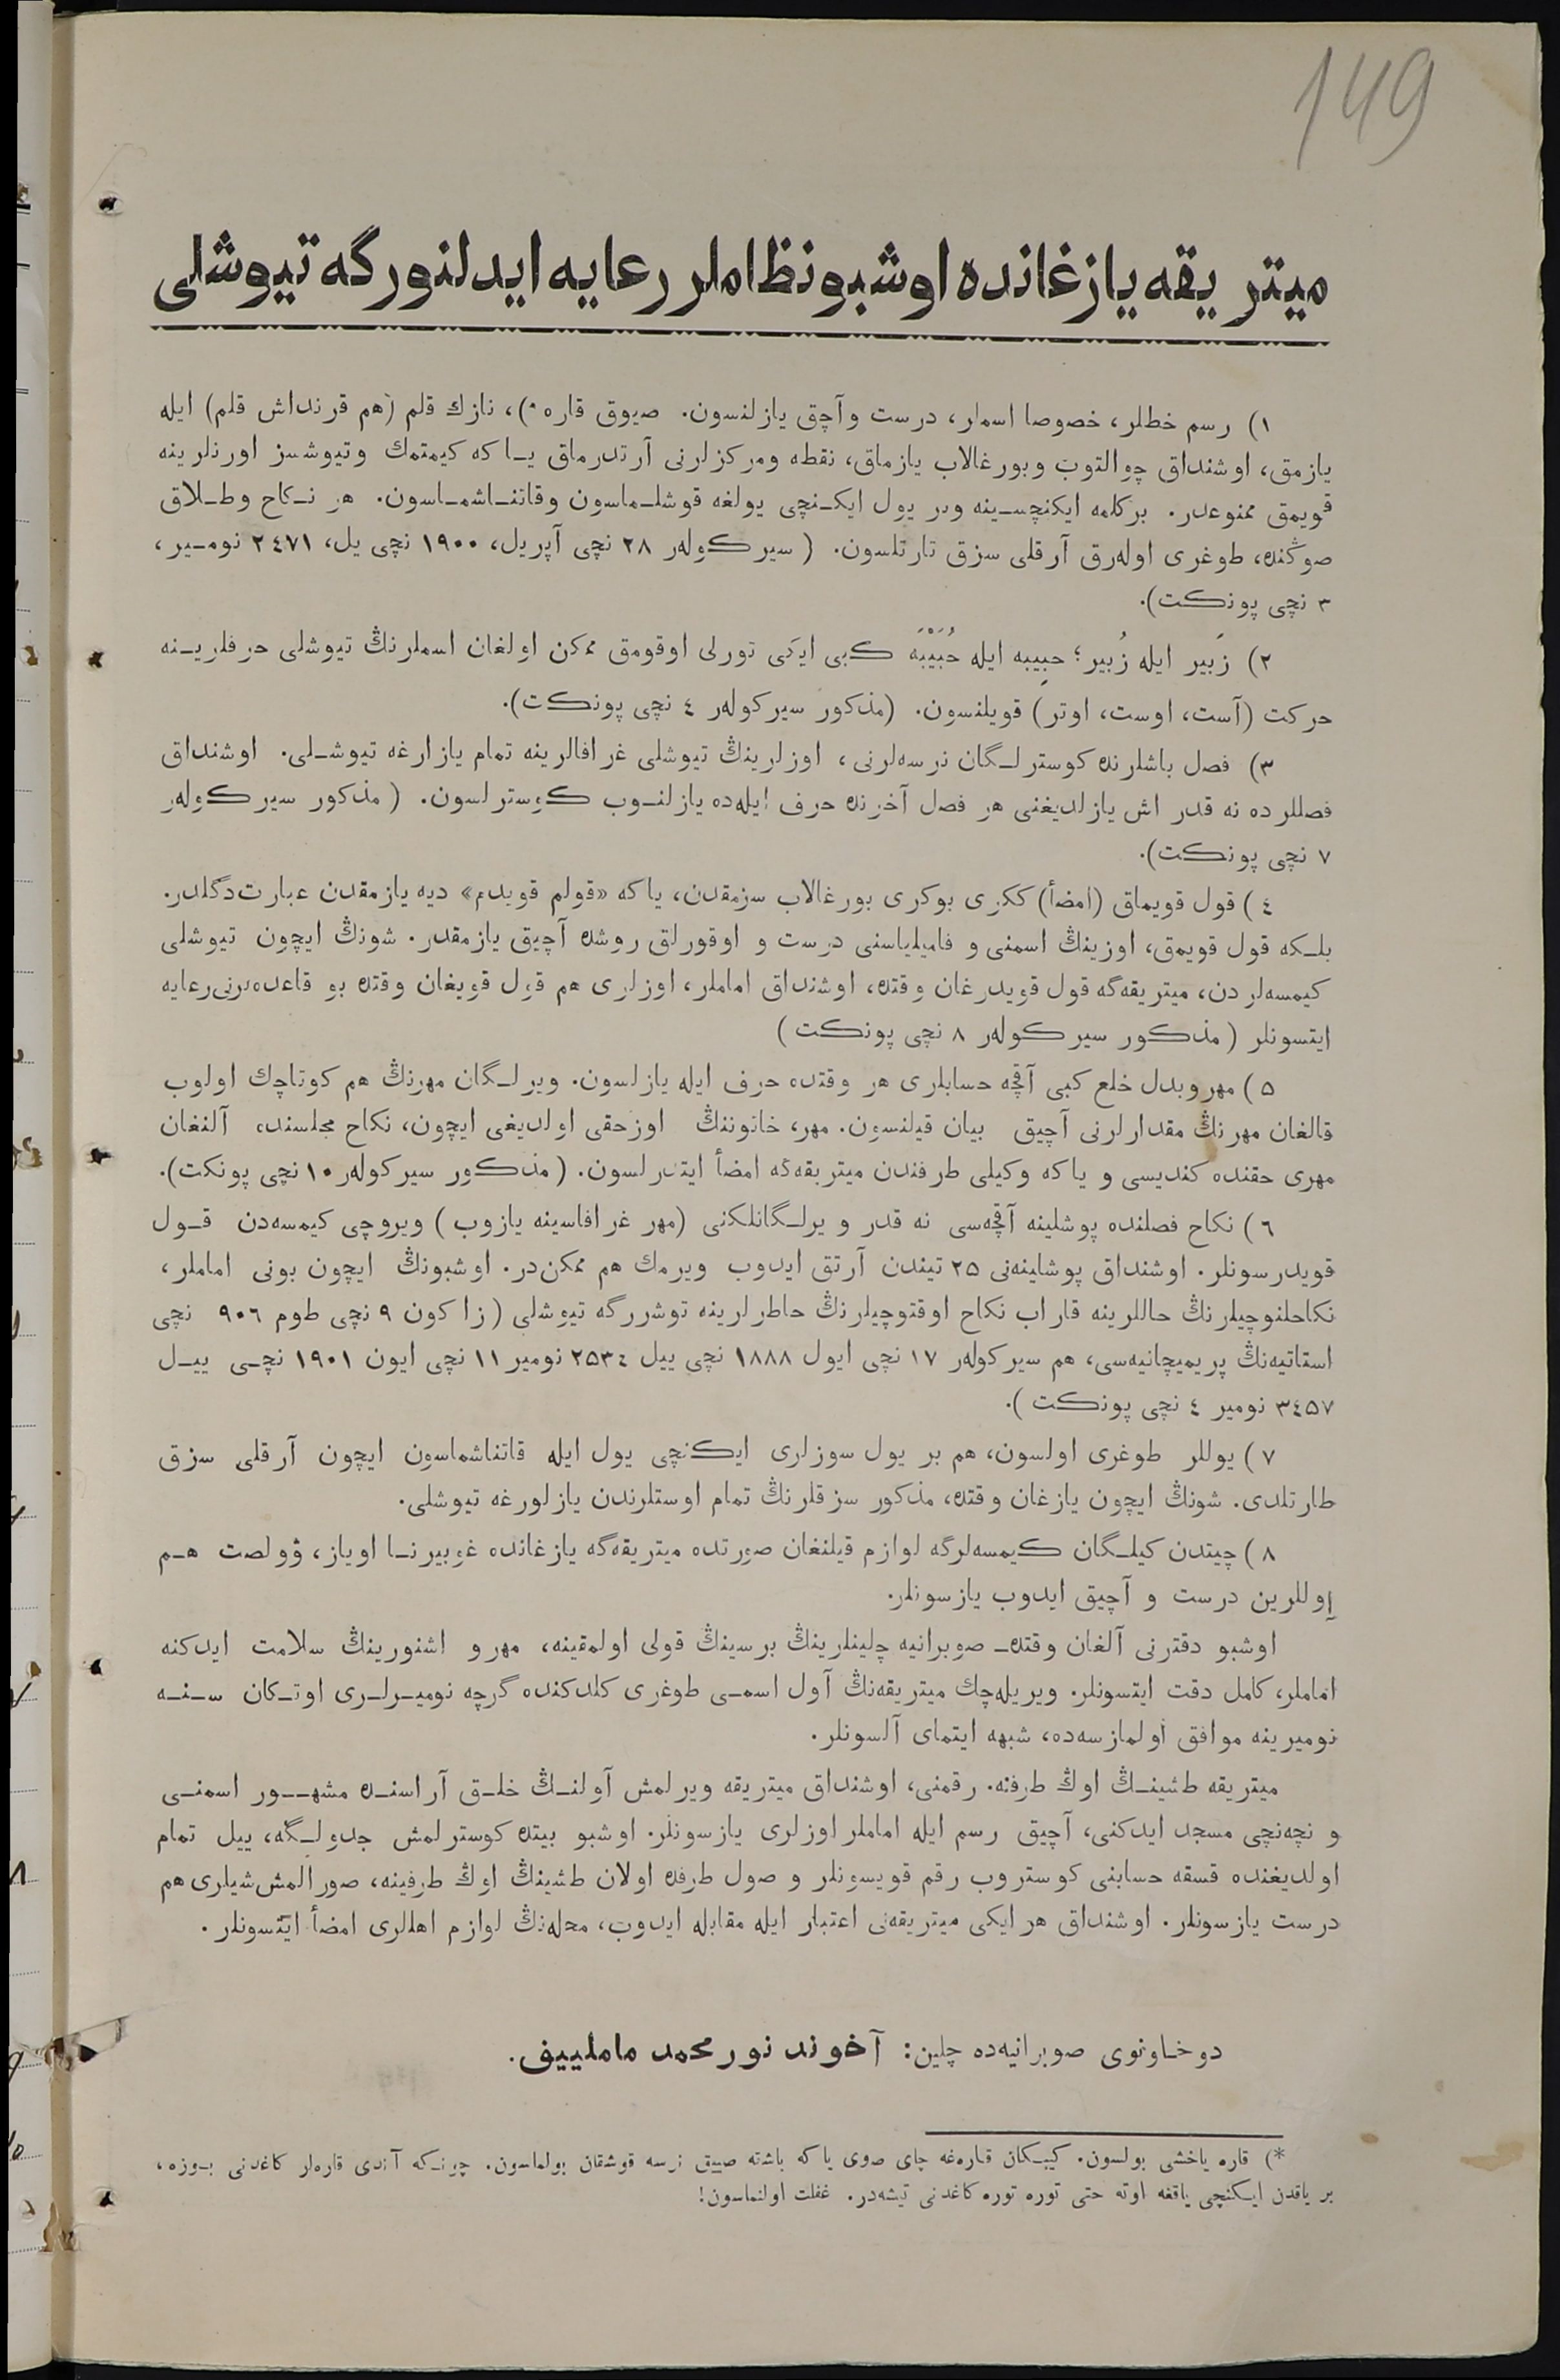 149
میتریقه یازغانده اوشبو نظاملر رعایه ایدلنورگه تیوشلی
١) رسم خطلر، خصوصا اسملر، درست وآچق یازلنسون. صیوق قاره*)، نازك قلم (هم قرنداش قلم) ایله
یازمق، اوشنداق چوالتوب وبورغالاب یازماق، نقطه ومرکزلرنی آرتدرماق یـا که کیمتمك وتیوشسز اورنلرینه
قویمق ممنوعدر. برکلمه ایکنچسـینه وبر یول ایکـنچی یولغه قوشلـماسون وقاتنـاشمـاسون. هر نـکاح وطـلاق
صوڭنده، طوغری اوله‌رق آرقلی سزق تارتلسون. (سیرکوله‌ر ٢٨ نچی آپریل، ١٩٠٠ نچی یل، ٢٤٧١ نومـیر،
٣ نچی پونکت).
٢) زَبیر ایله زُبیر؛ حبِیبه ایله حُبَیْبَه کبی ایکی تورلی اوقومق ممکن اولغان اسملرنڭ تیوشلی حرفلریـنه
حرکت (آست، اوست، اوتر) قویلنسون. (مذکور سیرکوله‌ر ٤ نچی پونکت).
٣) فصل باشلرنده کوسترلـگان نرسه‌لرنی، اوزلرینڭ تیوشلی غرافالرینه تمام یازارغه تیوشـلی. اوشنداق
فصللرده نه قدر اش یازلدیغنی هر فصل آخرنده حرف ایله‌ده یازلنـوب کوسترلسون. (مذکور سیرکوله‌ر
٧ نچی پونکت).
٤) قول قویماق (امضأ) ککری بوکری بورغالاب سزمقدن، یاکه «قولم قویدم» دیه یازمقدن عبارت‌دگلدر.
بلـکه قول قویمق، اوزینڭ اسمنی و فامیلیاسنی درست و اوقورلق روشده آچیق یازمقدر. شونڭ ایچون تیوشلی
کیمسه‌لردن، میتریقه‌گه قول قویدرغان وقتده، اوشنداق اماملر، اوزلری هم قول قویغان وقتده بو قاعده‌لرنی‌رعایه
ایتسونلر (مذکور سیرکوله‌ر ٨ نچی پونکت)
٥) مهروبدل خلع کبی آقچه حسابلری هر وقتده حرف ایله یازلسون. ویرلـگان مهرنڭ هم کوتاچك اولوب
قالغان مهرنڭ مقدارلرنی آچیق بیان قیلنسون. مهر، خاتوننڭ اوزحقی اولدیغی ایچون، نکاح مجلسنده آلنغان
مهری حقنده کندیسی و یاکه وکیلی طرفندن میتریقه‌گه امضأ ایتدرلسون. (مذکور سیرکوله‌ر ١٠ نچی پونکت).
٦) نکاح فصلنده پوشلینه آقچه‌سی نه قدر ویرلـگانلکنی (مهر غرافاسینه یازوب) ویروچی کیمسه‌دن قـول
قویدرسونلر. اوشنداق پوشلینه‌نی ٢٥ تیندن آرتق ایدوب ویرمك هم ممکن‌در. اوشبونڭ ایچون بونی اماملر،
نکاحلنوچیلرنڭ حاللرینه قاراب نکاح اوقتوچیلرنڭ خاطرلرینه توشررگه تیوشلی (زاکون ٩ نچی طوم ٩٠٦ نچی
استاتیه‌نڭ پریمیچانیه‌سی، هم سیرکوله‌ر ١٧ نچی ایول ١٨٨٨ نچی ییل ٢٥٣٤ نومیر ١١ نچی ایون ١٩٠١ نچـی ییـل
٣٤٥٧ نومیر ٤ نچی پونکت).
٧) یوللر طوغری اولسون، هم بر یول سوزلری ایکنچی یول ایله قاتناشماسون ایچون آرقلی سزق
طارتلدی. شونڭ ایچون یازغان وقتده، مذکور سزقلرنڭ تمام اوستلرندن یازلورغه تیوشلی.
٨) چیتدن کیلـگان کیمسه‌لرگه لوازم قیلنغان صورتده میتریقه‌گه یازغانده غوبیرنـا اویاز، ۋولصت هـم
آوللرین درست و آچیق ایدوب یازسونلر.
اوشبو دفترنی آلغان وقتده صوبرانیه چلینلرینڭ برسینڭ قولی اولمقینه، مهر و اشنورینڭ سلامت ایدکنه
اماملر، کامل دقت ایتسونلر. ویریله‌چك میتریقه‌نڭ آول اسمـی طوغری کلدکنده گرچه نومیـرلـری اوتـکان سـنـه
نومیرینه موافق اولمازسه‌ده، شبهه ایتمای آلسونلر.
میتریقه طشینـڭ اوڭ طرفنه رقمنی، اوشنداق میتریقه ویرلمش آولنـڭ خلـق آراسنـده مشهـور اسمنـی
و نچه‌نچی مسجد ایدکنی، آچیق رسم ایله اماملر اوزلری یازسونلر. اوشبو بیتده کوسترلمش جدولـگه، ییل تمام
اولدیغنده قسقه حسابنی کوستروب رقم قویسونلر و صول طرفده اولان طشینڭ اوڭ طرفینه، صورالمش‌شیلری هم
درست یازسونلر. اوشنداق هر ایکی میتریقه‌نی اعتبار ایله مقابله ایدوب، محله‌نڭ لوازم اهللری امضأ ایتسونلر.
دوخاونوی صوبرانیه‌ده چلین: آخوند نورمحمد ماملییف.
*) قاره یاخشی بولسون. کیبـکان قاره‌غه چای صوی یاکه باشته صییق نرسه قوشقان بولماسون. چونـکه آندی قاره‌لر کاغدنی بـوزه،
بر یاقدن ایکنچی یاقغه اوته حتی توره توره کاغدنی تیشه‌در. غفلت اولنماسون!